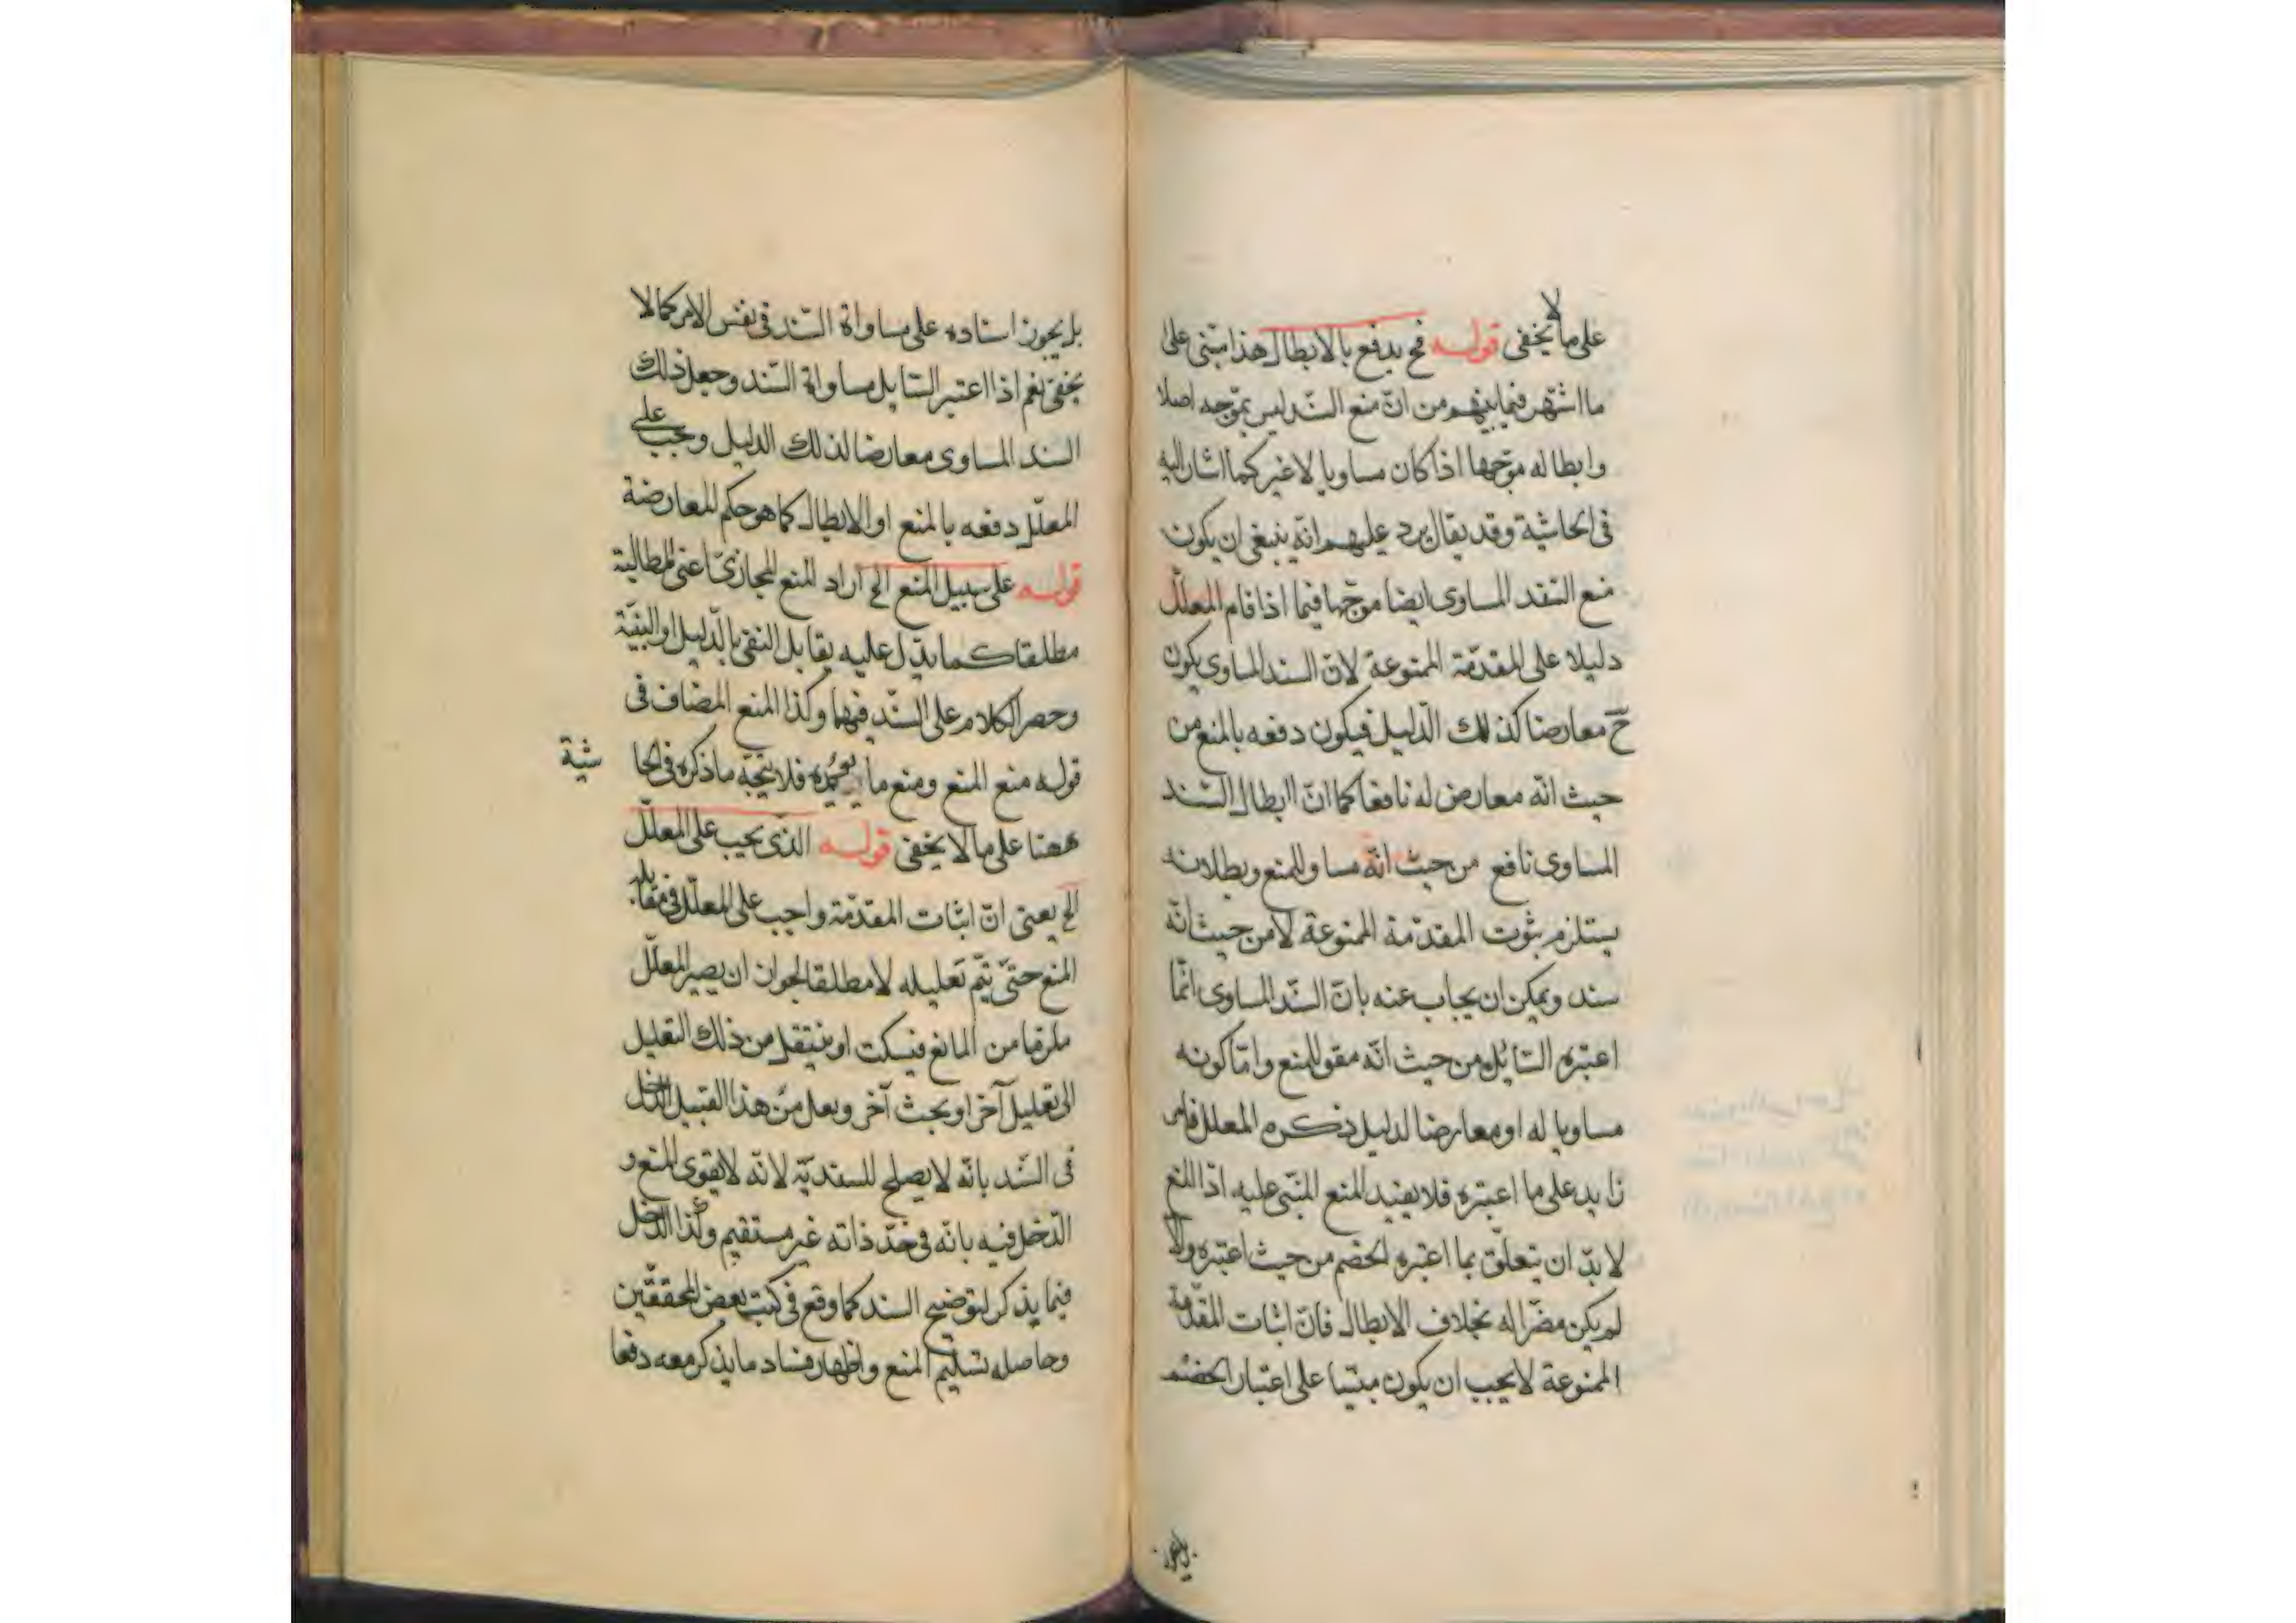 على ما لا يخفى قوله فح يدفع بالابطال هذا مبنى على
ما اشتهر فيما بينهم من انّ منع السّند ليس بموّجه اصلا
وابطاله موّجها اذا كان مساويا لا غير كما اشار اليه
فى الحاشية وقد يقال يرد عليهم انّه ينبغى ان يكون
منع السّند المساوى ايضا موجّها فيما اذا قام المعلّل
دليلا على المقدّمة الممنوعة لانّ السند المساوى يكون
حّ معارضا كذلك الدّليل فيكون دفعه بالمنع من
حيث انّه معارض له نافعا كما انّ ابطال السّند
المساوى نافع من حيث انّه مساو للمنع وبطلانه
يستلزم ثبوت المقدّمة الممنوعة لا من حيث انّه
سند ويمكن ان يجاب عنه بانّ السّند المساوى انّما
اعتبره السّائل من حيث انّه مقو للمنع وامّا كونه
مساويا له او معارضا لدليل ذكره المعلل فامر
زايد على ما اعتبره فلا يفيد المنع المبنّى عليه اذ المنع
لا بدّ ان يتعلّق بما اعتبره الخصم من حيث اعتبره والّا
لم يكن مضرّا له بخلاف الابطال فانّ اثبات المقدّمة
الممنوعة لا يجب ان يكون مبنيّا على اعتبار الخصم
بل يجوز
بل يجوز اسناده على مساواة السّند فى نفس الامر كما لا
يخفى نعم اذا اعتبر السّايل مساواة السّند وجعل ذلك
السند المساوى معارضا لذلك الدليل وجب على
المعلّل دفعه بالمنع او الابطال كما هو حكم المعارضة
قوله على سبيل المنع الخ اراد المنع المجازىّ اعنى المطالبة
مطلقا كما يدّل عليه يقابل النقى بالدّليل او البنيّة
وحصر الكلام على السّند فيهما وكذا المنع المضاف فى
قوله منع المنع ومنع ما يؤيده فلا يتجّه ما ذكره فى الحا
شية
ههنا على ما لا يخفى قوله الذى يجب على المعلّل
الخ يعنى انّ اثبات المقدّمة واجب على المعلّل فى مقابلة
المنع حتّى يتّم تعليله لا مطلقا لجواز ان يصير المعلّل
ملزما من المانع فيسكت او ينتقل من ذلك التعليل
الى تعليل آخر او بحث آخر ولعل من هذا القبيل الدّخل
فى السّند بانّه لا يصلح للسنديّة لانّه لا يقوى المنع و
الدّخل فيه بانّه فى حدّ ذاته غير مستقيم وكذا الدّخل
فيما يذكر لتوضيح السند كما وقع فى كتب بعض المحققّين
وحاصله تسليم المنع واظهار فساد ما يذكر معه دفعا